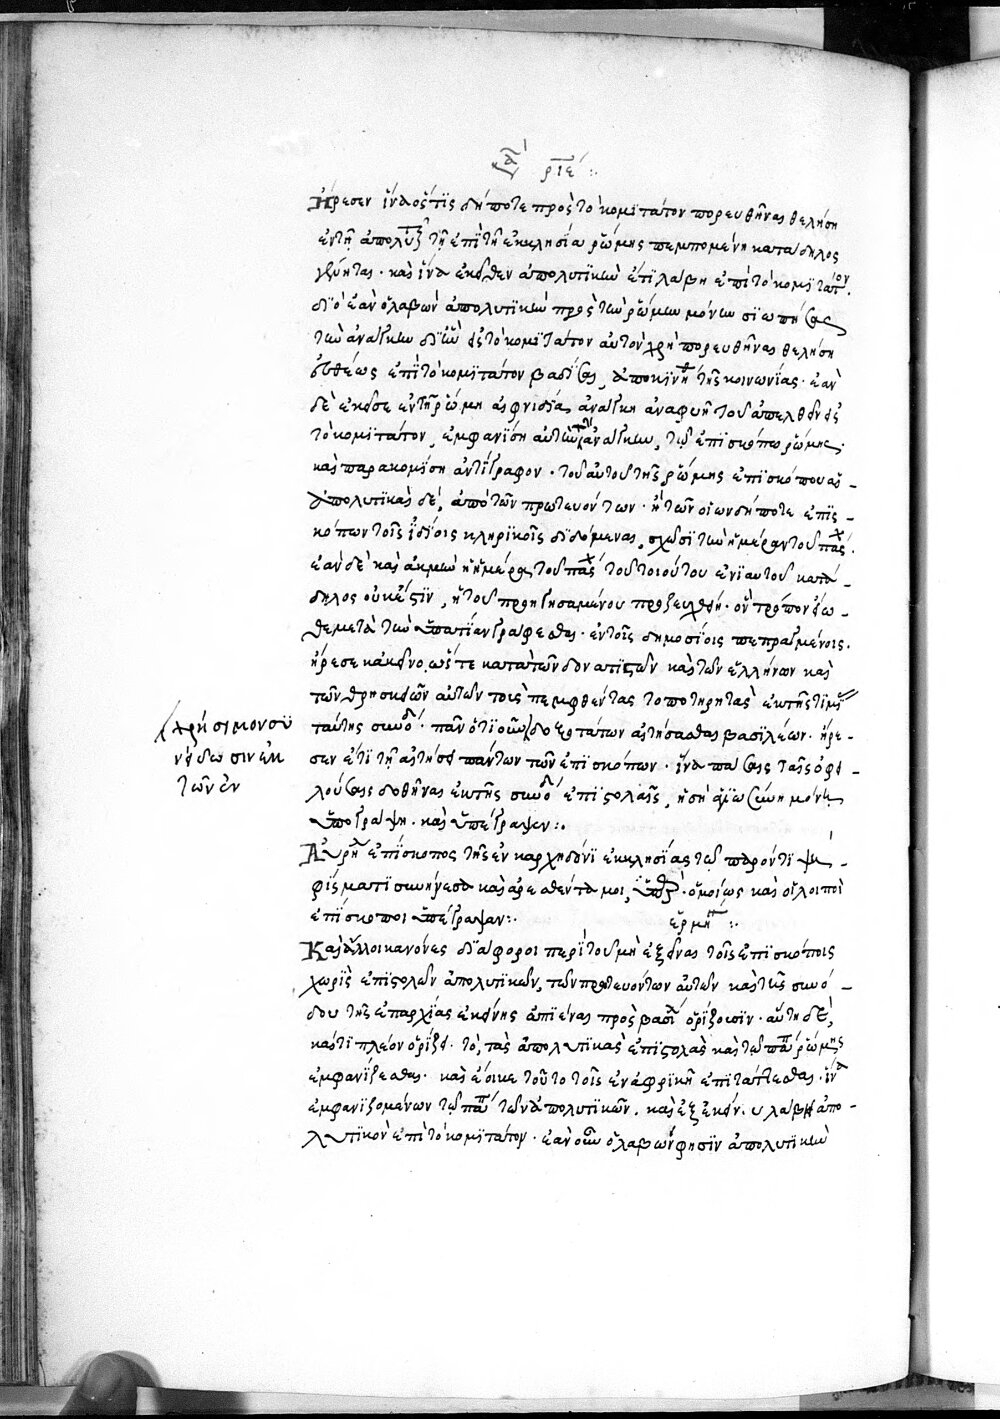 ριε΄:
Ἤρεσεν ἵνα ὅστις δήποτε πρὸς τὸ κομιτάτον πορευθῆναι θελήση
ἐν τῆ ἀπολυξ τῆ ἐπὶ τὴν ἐκκλησία ῥώμης πεμπομένη κατάδηλος
γένηται· καὶ ἵνα ἐκεῖθεν ἀπολυτικὴν ἐπιλάβη ἐπὶ τὸ κομιτάτον·
διὸ ἐὰν ὁ λαβὼν ἀπολυτικὴν πρὸς τὴν ῥώμην μόνην σιωπήσας
τὴν ἀνάγκην δι' ἣν εἰς τὸ κομιτάτον αὐτὸν χρὴ πορευθῆναι θελήση
εὐθέως ἐπὶ τὸ κομιτάτον βαδίσαι, ἀποκινηθῆ τῆς κοινωνίας· ἐὰν
δὲ ἐκεῖσε ἐν τῆ ῥώμη αἰφνιδία ἀνάγκη ἀναφυῆ τοῦ ἀπελθεῖν εἰς
τὸ κομιτάτον, ἐμφανίση αὐτὴν τὴν ἀνάγκην, τῷ ἐπισκόπω ῥώμης·
καὶ παρακομίση ἀντίγραφον· τοῦ αὐτοῦ τῆς ῥώμης ἐπισκόπου αἱ
ἀπολυτικαὶ δὲ, ἀπὸ τῶν πρωτευόντων· ἢ τῶν οἱωνδήποτε ἐπισ-
κόπων τοῖς ἰδίοις κληρικοῖς διδόμεναι, σχῶσι τὴν ἡμέραν τοῦ πάσχ·
ἐὰν δὲ καὶ ἀκμὴν ἡ ἡμέρα τοῦ πάσχ τοῦ τοιούτου ἐνιαυτοῦ κατά-
δηλος οὐκ ἐστὶν, ἡ τοῦ προηγησαμένου προζευχθῆ· ὃν τρόπον εἴω-
θε μετὰ τὴν ὑπατίαν γράφεσθαι· ἐν τοῖς δημοσίοις πεπραγμένοις.
ἤρεσε κἀκεῖνο, ὥστε κατὰ τῶν δονατιστῶν καὶ τῶν ἑλλήνων καὶ
τῶν θρησκειῶν αὐτῶν τοὺς πεμφθέντας τοποτηρητὰς ἐκ τῆς τιμ
ταύτης συνοδ· πᾶν ὅτι οὖν
σεν ἔτι τῆ αἰτήσει πάντων τῶν ἐπισκόπων· ἵνα πάσαις ταῖς ὀφει-
λούσαις δοθῆναι ἐκ τῆς συνοδ ἐπιστολαῖς, ἡ σὴ ἁγιωσύνη μόνη
ὑπογράψη· καὶ ὑπέγραψεν:·
Αὐρή ἐπίσκοπος τῆς ἐν καρχηδόνι ἐκκλησίας τῷ παρόντι ψη-
φίσματι συνήνεσα καὶ ἀρεσθέντα μοι, ὑπέγρ· ὁμοίως καὶ οἱ λοιποὶ
ἐπίσκοποι ὑπέγραψαν:· ἑρμη:·
Καὶ ἄλλοι κανόνες διάφοροι περὶ τοῦ μὴ ἐξεῖναι τοῖς ἐπισκόποις
χωρὶς ἐπιστολῶν ἀπολυτικῶν, τῶν πρωτευόντων αὐτῶν καὶ τῆς συνό-
δου τῆς ἐπαρχίας ἐκείνης ἀπιέναι πρὸς βασι ὁρίζουσιν· αὕτη δὲ,
καί τι πλέον ὁρίζει· τὸ, τὰς ἀπολυτικὰς ἐπιστολὰς καὶ τῷ πάπα ῥώμης
ἐμφανίζεσθαι· καὶ ἔοικε τοῦτο τοῖς ἐν ἀφρικῆ ἐπιτάττεσθαι· ἵνα
ἐμφανιζομένων τῷ πάπα τῶν ἀπολυτικῶν, καὶ ἐξ ἐκείν λάβη ἀπο-
λυτικὸν ἐπὶ τὸ κομιτάτον· ἐὰν οὖν ὁ λαβὼν φησὶν ἀπολυτικὴν